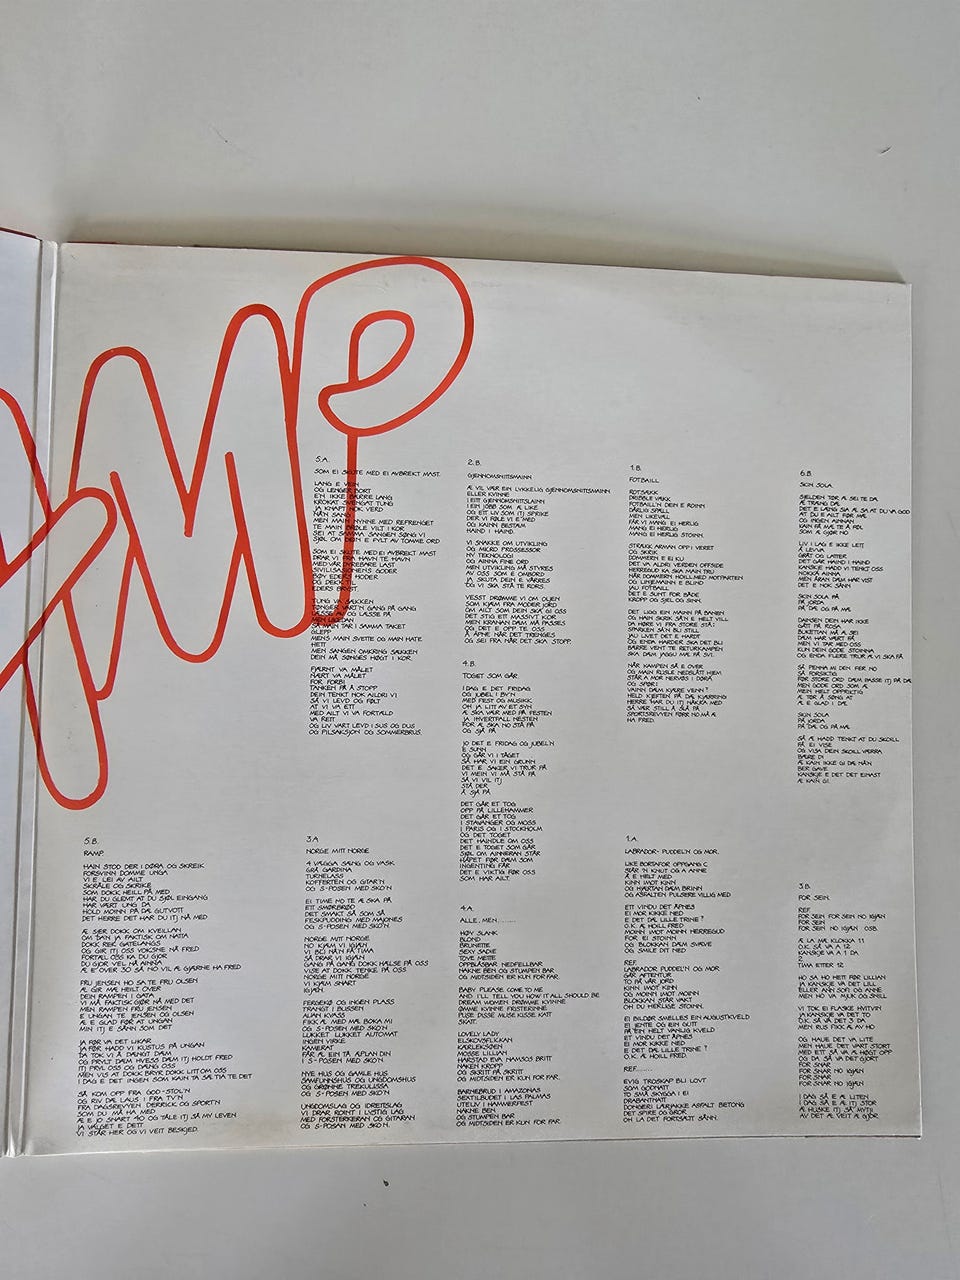 5.A.
SOM EI SKUTE MED EI AVBREKT MAST.
LANG E VEIN
OG LENGER BORT
E'N IKKE BARRE LANG
KROKAT SVENGAT TUNG
NÅ'N SANG
MEN MAIN NYNNE MED REFRENGET
SEI AT SAMMA SANGEN SØNG VI
SJØL OM DEIN E FYLT AV TOMME ORD
SOM EI SKUTE MED EI AVBREKT MAST
DRAR VI FRA HAVN TE HAVN
MED VÅR DYREBARE LAST
SIVILISASJONENS GODER
BØY EDERS HODER
OG DEKK TIL
EDERS BRYST.
TUNG VA SEKKEN
TONGER VART'N GANG PÅ GANG
LESSE AV OG LESSE PÅ
MEN LIKEDAN
SÅ MAIN TAR I SAMMA TAKET
GLEPP
MENS MAIN SVETTE OG MAIN HATE
HETT
MEN SANGEN OMKRING SEKKEN
DEIN MÅ SØNGES HØGT I KOR.
FJÆRNT VA MÅLET
NÆRT VA MÅLET
FOR FORBI
TANKEN PÅ Å STOPP
DEIN TENKT NOK ALDRI VI
SÅ VI LEVD OG FØLT
AT VI VA ETT
MED ALT VI VA FORTÆLD
VA REIT
OG LIV VART LEVD I SUS OG DUS
OG PILSAKSJON OG SOMMERBRUS.
2.B.
GJENNOMSNITTSMAINN
Æ VIL VÆR EIN LYKKELIG GJENNOMSNITTSMAINN
ELLER KVINNE
I EIT GJENNOMSNITTSLAINN
I EIN JOBB SOM Æ LIKE
OG EIT LIV SOM ITJ SPRIKE
DER VI FØLE VI E MED
OG KAINN BESTÆM
HAIND I HAIND.
VI SNAKKE OM UTVIKLING
OG MICRO PROSSESSOR
NY TEKNOLOGI
OG AINNA FINE ORD
MEN UTVIKLING MÅ STYRES
AV OSS SOM E OMBORD
JA SKUTA DEIN E VÅRRES
OG VI SKA STÅ TE RORS.
VESST DRØMME VI OM OLJEN
SOM KJÆM FRA MODER JORD
OM ALT SOM DEIN SKA GI OSS
DET STIG ETT MASSIVT KOR
MEN KRANAN DÆM MÅ PASSES
OG DET E OPP TE OSS
Å ÅPNE NÅR DET TRENGES
OG SEI FRA NÅR DET SKA STOPP.
4.B.
TOGET SOM GÅR
I DAG E DET FREDAG
OG JUBEL I BY'N
MED FEST OG MUSIKK
OH JA LITT AV ET SYN
Æ SKA VÆR MED PÅ FESTEN
JA IHVERTFALL NESTEN
FOR Æ SKA NO STÅ PÅ
OG SJÅ PÅ
JO DET E FREDAG OG JUBEL'N
E SUNN
OG GÅR VI I TÅGET
SÅ HAR VI EIN GRUNN
DET E SAKER VI TRUR PÅ
VI MEIN VI MÅ STÅ PÅ
SÅ VI VIL ITJ
STÅ DER
Å SJÅ PÅ
DET GÅR ET TOG
OPP PÅ LILLEHAMMER
DET GÅR ET TOG
I STAVANGER OG MOSS
I PARIS OG I STOCKHOLM
OG DET TOGET
DET HAINDLE OM OSS
DET E TOGET SOM GÅR
SJØL OM AINNERAN STÅR
HÅPET FØR DÆM SOM
INGENTING FÅR
DET E VIKTIG FØR OSS
SOM HAR ALT.
1.B.
FOTBAILL
ROTSEKK
DRIBLE VEKK
FOTBAILL'N DEIN E ROINN
DÅRLIG SPILL
MEN LIKEVÆL
FÅR VI MANG EI HERLIG
MANG EI HERLIG
MANG EI HERLIG STOINN.
STREKK ARMAN OPP I VERET
OG SKRIK
DOMMERN E EI KU
DET VA ALDRI VERDEN OFFSIDE
HERREGUD KA SKA MAIN TRU
NÅR DOMMERN HOILL MED MOTPARTEN
OG LINJEMANN E BLIND
JAU FOTBAILL
DET E SUNT FOR BÅDE
KROPP OG SJEL OG SINN.
DET LIGG EIN MAINN PÅ BANEN
OG HAIN SKRIK SÅ'N E HELT VILL
DA HØRE VI FRA STORE STÅ
SPARKEN SÅ'N BLI STILL
JAU LIVET DET E HARDT
OG ENDA HARDER SKA DET BLI
BARRE VENT TE RETURKAMPEN
SKA DÆM JAGGU MÆ FÅ SVI.
NÅR KAMPEN SÅ E OVER
OG MAIN RUSLE NEDSLÅTT HJEM
STÅR A MOR NERVØS I DØRA
OG SPØR:
VAINN DÆM KJÆRE VENN?
HELD KJEFTEN PÅ DÆ KJÆRRING
HERRE HAR DU ITJ NÅKKA MED
SÅ VÆR STILL Å SLÅ PÅ
SPORTSREVYEN FØRR NO MÅ Æ
HA FRED.
6.B.
SKIN SOLA.
SJELDEN TØR Æ SEI TE DÆ
Æ TRENG DÆ
DET E LENG SIA Æ SA AT DU VA GOD
AT DU E ALT FØR MÆ
OG INGEN AINNAN
KAIN FÅ MÆ TE Å FØL
SOM Æ GJØR NO
LIV I LAG E IKKE LETT
Å LEVVA
GRÅT OG LATTER
DET GÅR HAIND I HAIND
KANSKJE HADD VI TENKT OSS
NOKKA AINNA
MEN ÅRAN DÆM HAR VIST
DET E NOK SÅNN
SKIN SOLA PÅ
PÅ JORDA
PÅ DÆ OG PÅ MÆ
DANSEN DEIN HAR IKKE
GÅTT PÅ ROSA
BUKETTAN MÅ Æ SEI
DÆM HAR VÆRT FÅ
MEN VI TAR MED OSS
KUN DEIN GODE STOINNA
OG ENDA FLERE TRUR Æ VI SKA FÅ
SÅ PENNA MI DEN FER NO
SÅ FORSIKTIG
FØR STORE ORD DÆM PASSE ITJ PÅ DÆ
MEN GODE ORD SOM Æ
MEN HELT OPPRIKTIG
Æ TØR Å SØNG AT
Æ E GLAD I DÆ.
SKIN SOLA
PÅ JORDA
PÅ DÆ OG PÅ MÆ.
SÅ Æ HADD TENKT AT DU SKOILL
FÅ EI VISE
OG VISA DEIN SKOILL VÆRRA
BÆRE DI
Æ KAIN IKKE GI DÆ NÅ'N
BER GAVE
KANSKJE E DET DET EINAST
Æ KAIN GI.
5.B.
RAMP.
HAIN STOD DER I DØRA OG SKREIK
FORSVINN DOMME UNGA
VI E LEI AV ALT
SKRÅLE OG SKRIKE
SOM DOKK HEILL PÅ MED
HAR DU GLEMT AT DU SJØL EINGANG
HAR VÆRT UNG DA
HOLD MOINN PÅ DÆ GUTVOTT
DET HERRE DET HAR DU ITJ NÅ MED
Æ SIER DOKK OM KVEILLAN
OM DA'N JA FAKTISK OM NATTA
DOKK REK GATELANGS
OG GIR ITJ OSS VOKSNE NÅ FRED
FORTÆL OSS KA DU GJØR
DU GJØR VEL NÅ AINNA
Æ E OVER 30 SÅ NO VIL Æ GJÆRNE HA FRED
FRU JENSEN HO SA TE FRU OLSEN
Æ GIR MÆ HEILT OVER
DEIN RAMPEN I GATA
VI MÅ FAKTISK GJØR NÅ MED DET
MEN RAMPEN FRU JENSEN
E UNGAN TE JENSEN OG OLSEN
Æ E GLAD FØR AT UNGAN
MIN ITJ E SÅNN SOM DET
JA FØR VA DET LIKAR
JA FØR HADD VI KUSTUS PÅ UNGAN
DA TOK VI Å DÆNGT DÆM
OG PRYLT DÆM HVESS DÆM ITJ HOLDT FRED
ITJ PRYL OSS OG DÆNG OSS
MEN VIS AT DOKK BRYR DOKK LITT OM OSS
I DAG E DET INGEN SOM KAIN TA SÆ TIA TE DET
SÅ KOM OPP FRA GOD-STOL'N
OG RIV DÆ LAUS I FRA TV'N
FRA DAGSREVYEN DERRICK OG SPORT'N
SOM DU MÅ HA MED
Æ E JO SNART 40 OG TÅLE ITJ SÅ MY LEVEN
JA VALGET E DETT
VI STÅR HER OG VI VEIT BESKJED.
3.A
NORGE MITT NORGE
4 VEGGA SENG OG VASK
GRÅ GARDINA
TURNELASS
KOFFERTEN OG GITAR'N
OG S-POSEN MED SKO'N
EI TIME NO TE Æ SKA PÅ
ETT SMØRBRØD
DET SMAKT SÅ SOM SÅ
FESKPUDDING MED MAJONES
OG S-POSEN MED SKO'N.
NORGE MITT NORGE
NO KJÆM VI IGJÆN
VI BLI NÅ'N FÅ TIMA
SÅ DRAR VI IGJÆN
GANG PÅ GANG DOKK HELSE PÅ OSS
VISE AT DOKK TENKE PÅ OSS
NORGE MITT NORGE
VI KJÆM SNART
IGJÆN.
FERGEKØ OG INGEN PLASS
TRANGT I BUSSEN
ALAN KVASS
FIKK Æ MED MÆ BOKA MI
OG S-POSEN MED SKO'N
LUKKET LUKKET AUTOMAT
INGEN VIRKE
KAMERAT
FÅR Æ EIN TÅ ÆPLAN DIN
I S-POSEN MED SKO'N.
NYE HUS OG GAMLE HUS
SAMFUNNSHUS OG UNGDOMSHUS
OG GRØNNE TREKULISSA
OG S-POSEN MED SKO'N
UNGDOMSLAG OG IDRETTSLAG
VI DRAR ROINT I LYSTIG LAG
MED FORSTERKERN OG GITARAN
OG S-POSAN MED SKO'N.
4.A.
ALLE, MEN........
HØY SLANK
BLOND
BRUNETTE
SEXY SADIE
TOVE METTE
OPPBLÅSBAR NEDFELLBAR
NAKNE BEN OG STUMPEN BAR
OG MIDTSIDEN ER KUN FOR FAR.
BABY PLEASE COME TO ME
AND I'LL TELL YOU HOW IT ALL SHOULD BE
DREAM WOMEN DRØMME KVINNE
ØMME KVINNE FRISTERINNE
PUSE DISSE MUSE KISSE KATT
SKATT.
LOVELY LADY
ELSKOVSFLICKAN
KÆRLEKSJØEN
MOSSE LILLIAN
HARSTAD EVA NAMSOS BRITT
NAKEN KROPP
OG SKRITT PÅ SKRITT
OG MIDTSIDEN ER KUN FOR FAR.
BARNEBRUD I AMAZONAS
SEXTILBUDET I LAS PALMAS
UTELIV I HAMMERFEST
NAKNE BEN
OG STUMPEN BAR
OG MIDTSIDEN ER KUN FOR FAR.
1.A.
LABRADOR- PUDDEL'N OG MOR.
LIKE BORTAFOR OPPGANG C
STÅR 'N KNUT OG A ANNE
Å E HELT MED
KINN IMOT KINN
OG HJÆRTAN DÆM BRINN
OG ASFALTEN PULSERE VILLIG MED
ETT VINDU DET ÅPNES
EI MOR KIKKE NED
E DET DÆ LILLE TRINE?
O.K. Æ HOILL FRED
MOINN IMOT MOINN HERREGUD
FOR EI STOINN
OG BLOKKAN DÆM SVEVE
OG SMILE DIT NED
REF.
LABRADOR PUDDEL'N OG MOR
LÆR AFTENTUR
TO PÅ VÅR JORD
KINN IMOT KINN
OG MOINN IMOT MOINN
BLOKKAN STÅR VAKT
OH DU HERLIGE STOINN.
EI BILDØR SMELLES EIN AUGUSTKVELD
EI JENTE OG EIN GUTT
ETT VINDU DET ÅPNES
EI MOR KIKKE NED
E DET DÆ LILLE TRINE?
O.K. Æ HOILL FRED.
REF.......
EVIG TROSKAP BLI LOVT
SOM GODNATT
TO SMÅ SKYGGA I EI
DRABANTNATT
DONGERI LÆRJAKKE ASFALT BETONG
DET SPIRE OG GROR
OH LA DET FORTSATT SÅNN.
3.B.
FOR SEIN.
REF.
FOR SEIN FOR SEIN NO IGJEN
FOR SEIN
FOR SEIN NO IGJÆN OSB.
Æ LA MÆ KLOKKA 11
O.K. SÅ VA A 12
KANSKJE VA A 1 DA
2
TIMA ETTER 12
HO SA HO HEITT FØR LILLIAN
JA KANSKJE VA DET LILL
ELLER ANN SOFI OG ANNE
MEN HO VA MJUK OG SNILL
VI TOK EI FLASKE HVITVIN
JA KANSKJE VA DET TO
O.K. SÅ VA DET 3 DA
MEN RUS FIKK Æ AV HO
OG HAUE DET VA LITE
MEN HAUE DET VART STORT
MED ETT SÅ VA Æ HØGT OPP
OG DA SÅ VA DET GJORT
FOR SNAR
FOR SNAR NO IGJÆN
FOR SNAR
FOR SNAR NO IGJÆN
I DAG SÅ E Æ LITEN
I DAG SÅ E Æ ITJ STOR
Æ HUSKE ITJ SÅ MYTJI
AV DET Æ VEIT Æ GJOR.